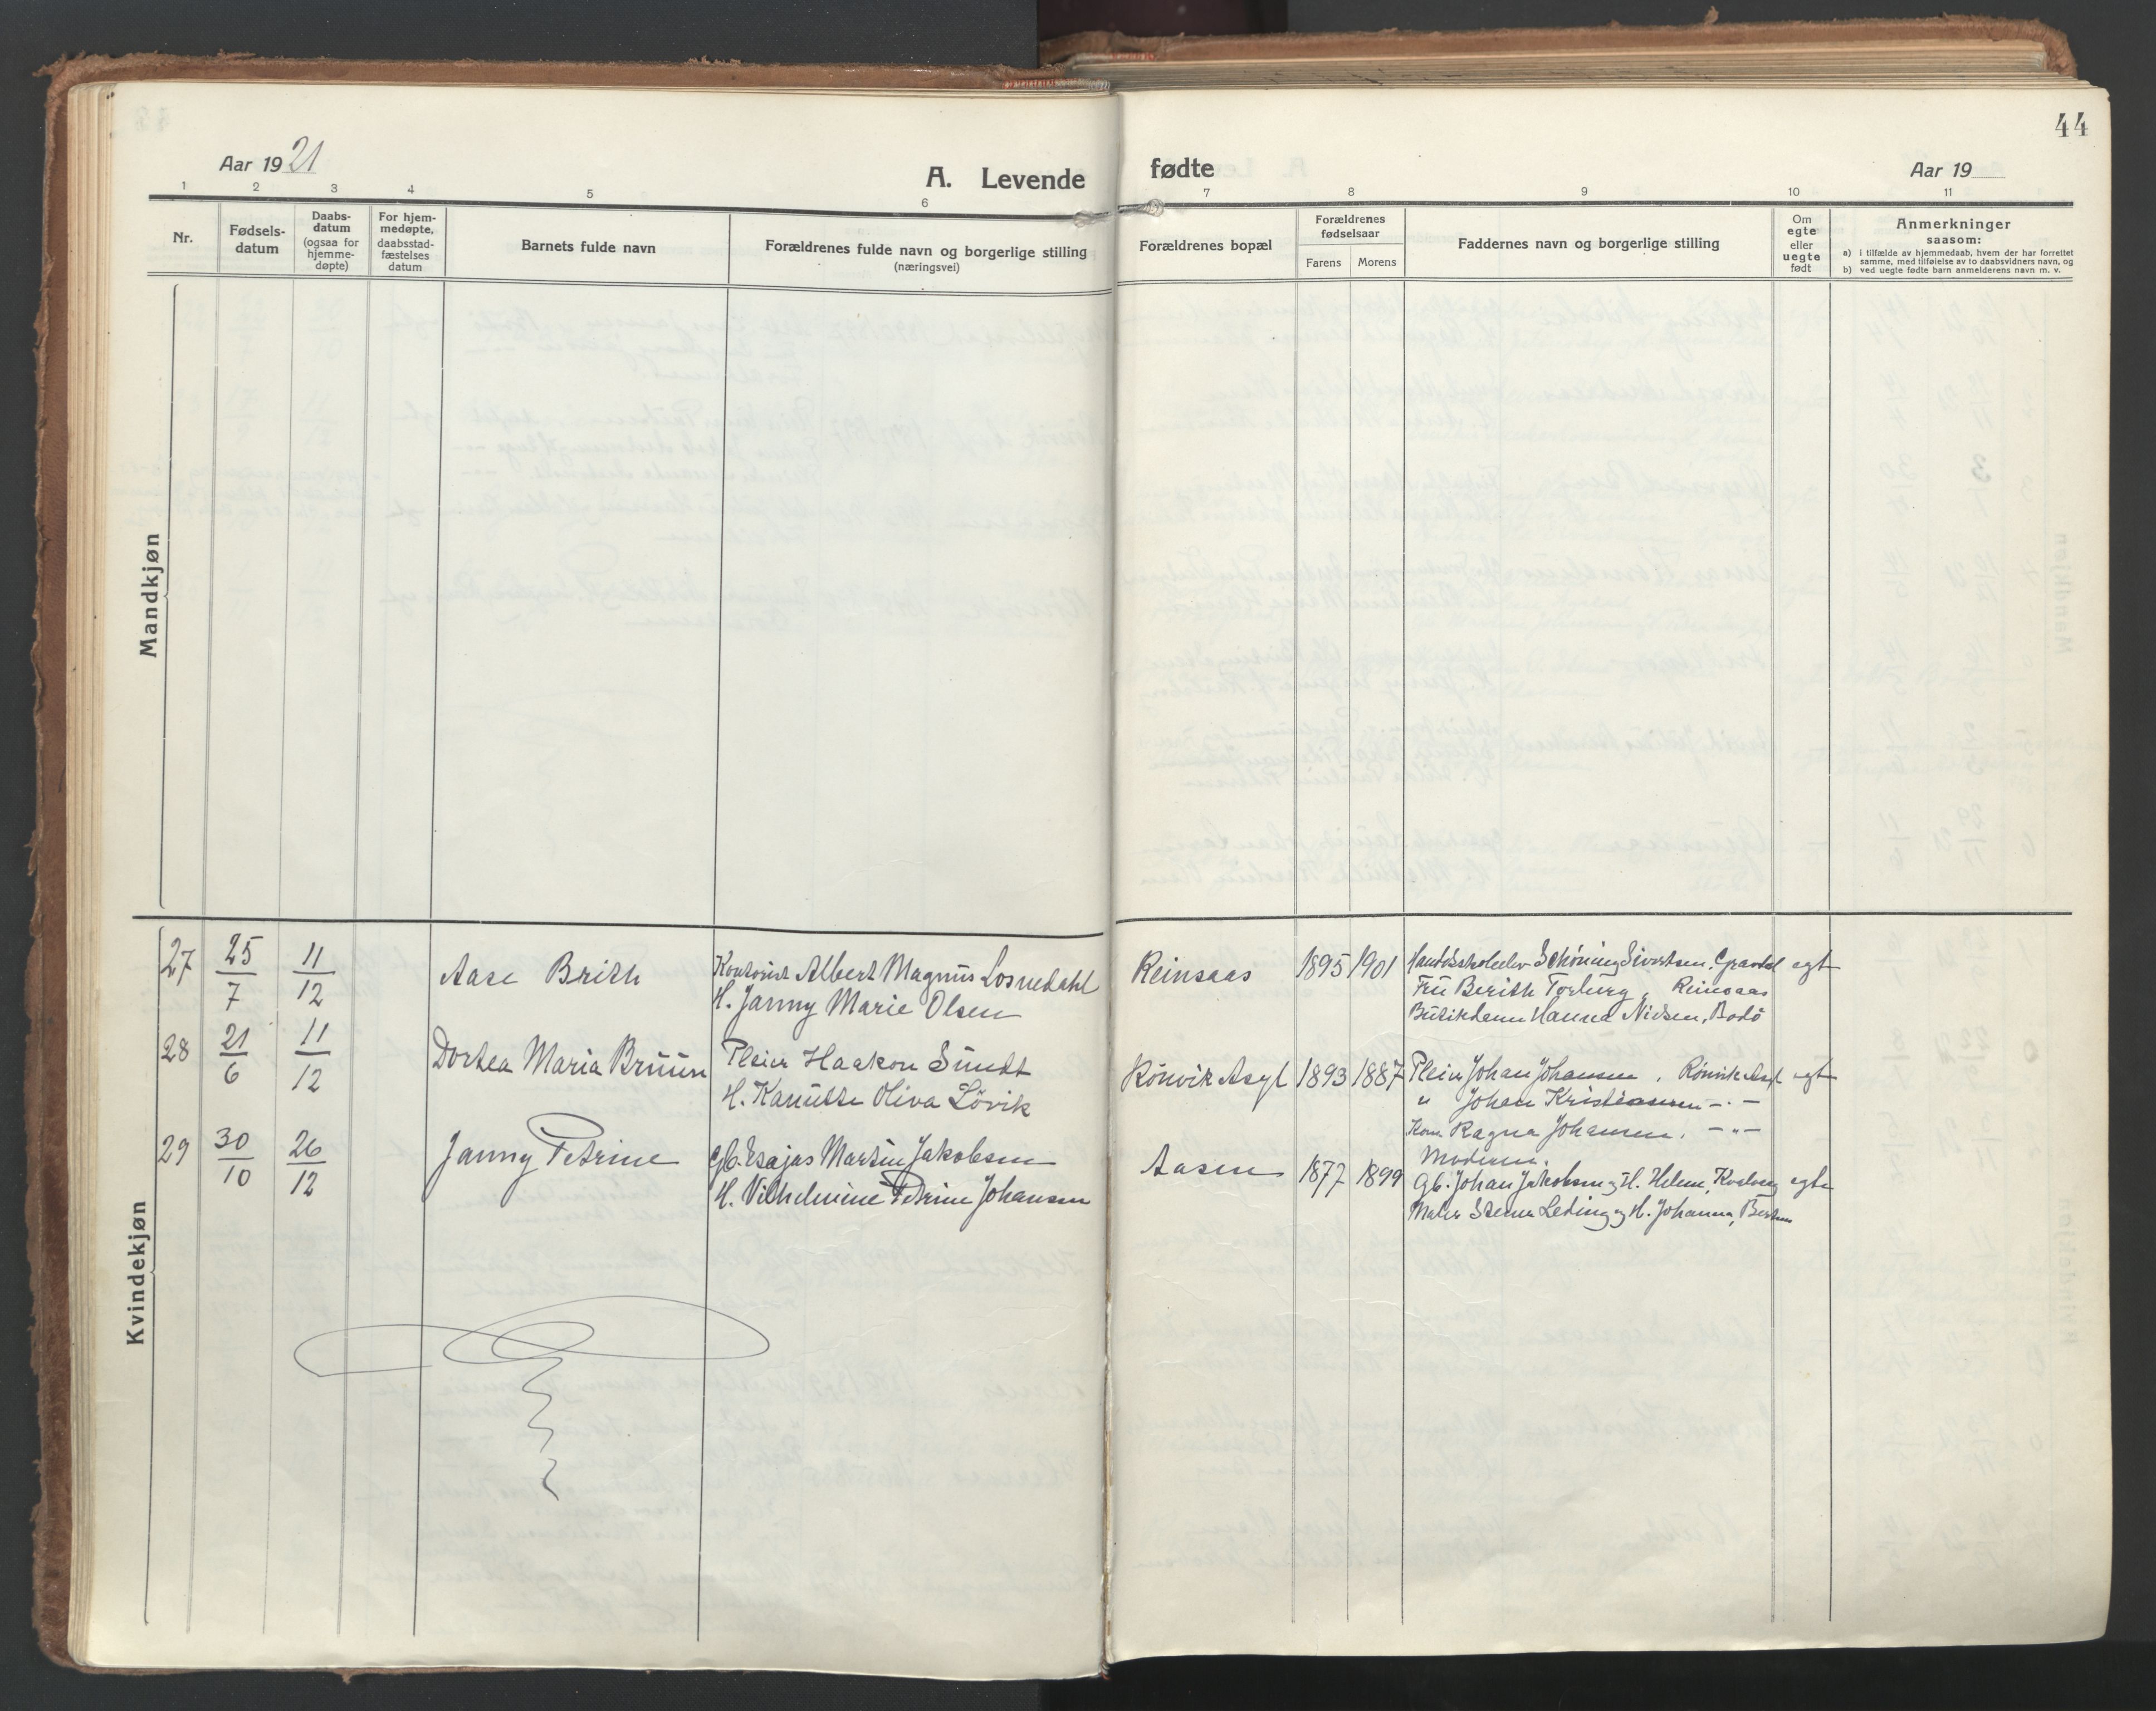 44
Aar 1921
A. Levende fødte
Aar 19
1 2 3 4 5 6 7 8 9 10 11
Nr.
Fødsels-
datum
Daabs-
datum
(ogsaa for
hjemme-
døpte)
For hjem-
medøpte,
daabsstad-
fæstelses
datum
Barnets fulde navn
Forældrenes fulde navn og borgerlige stilling
(næringsvei)
Forældrenes bopæl
Forældrenes
fødselsaar
Farens Morens
Faddernes navn og borgerlige stilling
Om
egte
eller
uegte
født
Anmerkninger
saasom:
a) i tilfælde av hjemmedaab, hvem der har forrettet
samme, med tilføielse av to daabsvidners navn, og
b) ved uegte fødte barn anmelderens navn m. v.
Mandkjøn
Kvindekjøn
27 25/7 11/12 Aase Brith
Kontorist Albert Magnus Losnedahl
H. Janny Marie Olsen
Reinsaas 1895 1901
Handelsskoleelev Schöning Sivertsen, Gravdal egte
Frü Berith Torburg, Reinsaas
Bütikdame Hanna Nielsen, Bodö
28 21/6 11/12 Dortea Maria Brüün
Pleier Haakon Sündt
H. Kanütte Oliva Lövik
Rönvik Asyl 1893 1887
Pleier Johan Johansen, Rönvik Asyl egte
" Johan Kristiansen - . -
Kone Ragna Johansen, - " -
Moderen.
29 30/10 26/12 Janny Petrine
Gb. Esajas Martin Jakobsen
H. Vilhelmine Petrine Johansen
Aasen 1877 1899
Gb. Johan Jakobsen og H. Helene, egte
Maler Leding og H. Johanna,